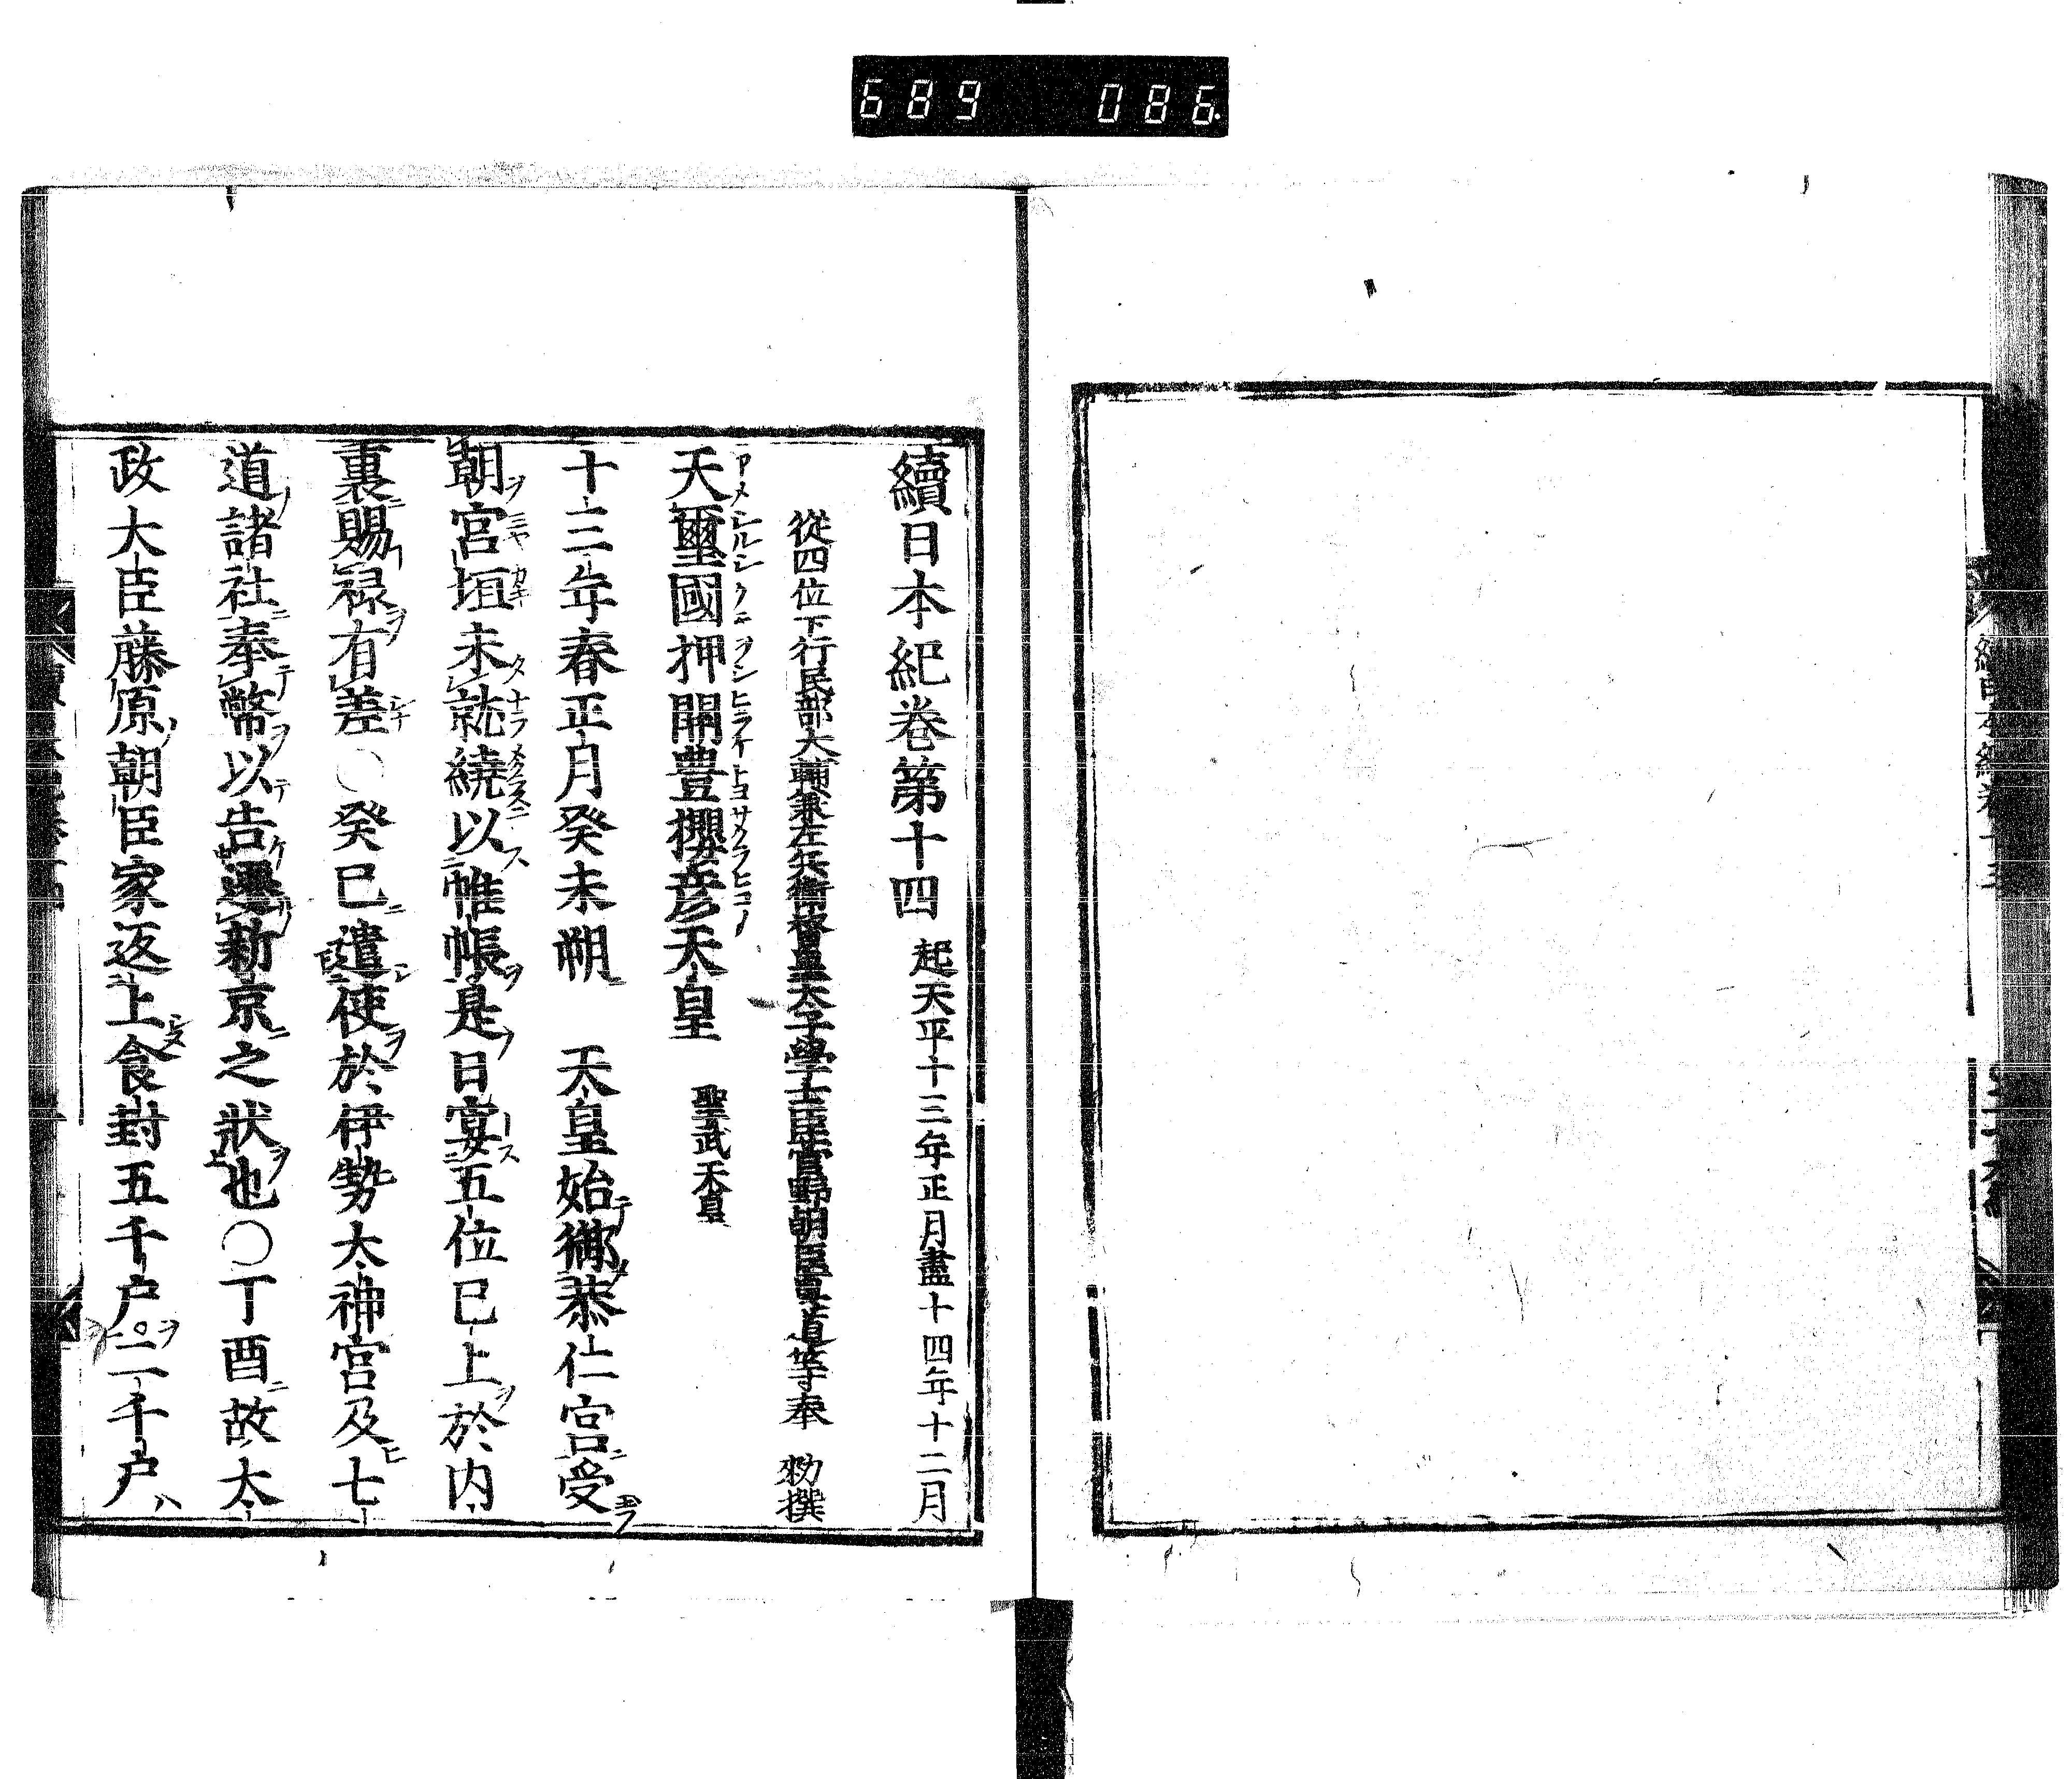 689 086
續日本紀卷第十四 起天平十三年正月盡十四年十二月
從四位下行民部大輔兼左兵衛督皇太子學士臣菅野朝臣眞道等奉 勅撰
天璽國押開豐櫻彦天皇 聖武天皇
十三年春正月癸未朔 天皇始御恭仁宮受
朝宮垣未就繞以帷帳是日宴五位已上於内
裏賜禄有差○癸巳遣使於伊勢太神宮及七
道諸社奉幣以告遷新京之狀也○丁酉故太
政大臣藤原朝臣家返上食封五千戸二千戸